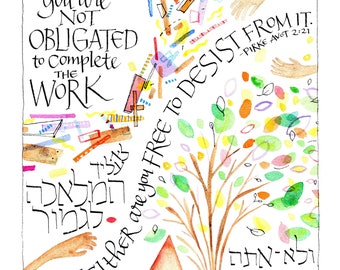 you are
NOT
OBLIGATED
to complete
THE
WORK
neither are you FREE TO DESIST FROM IT.
PIRKE AVOT 2:21
המלאכה
לגמור
ולא-אתה